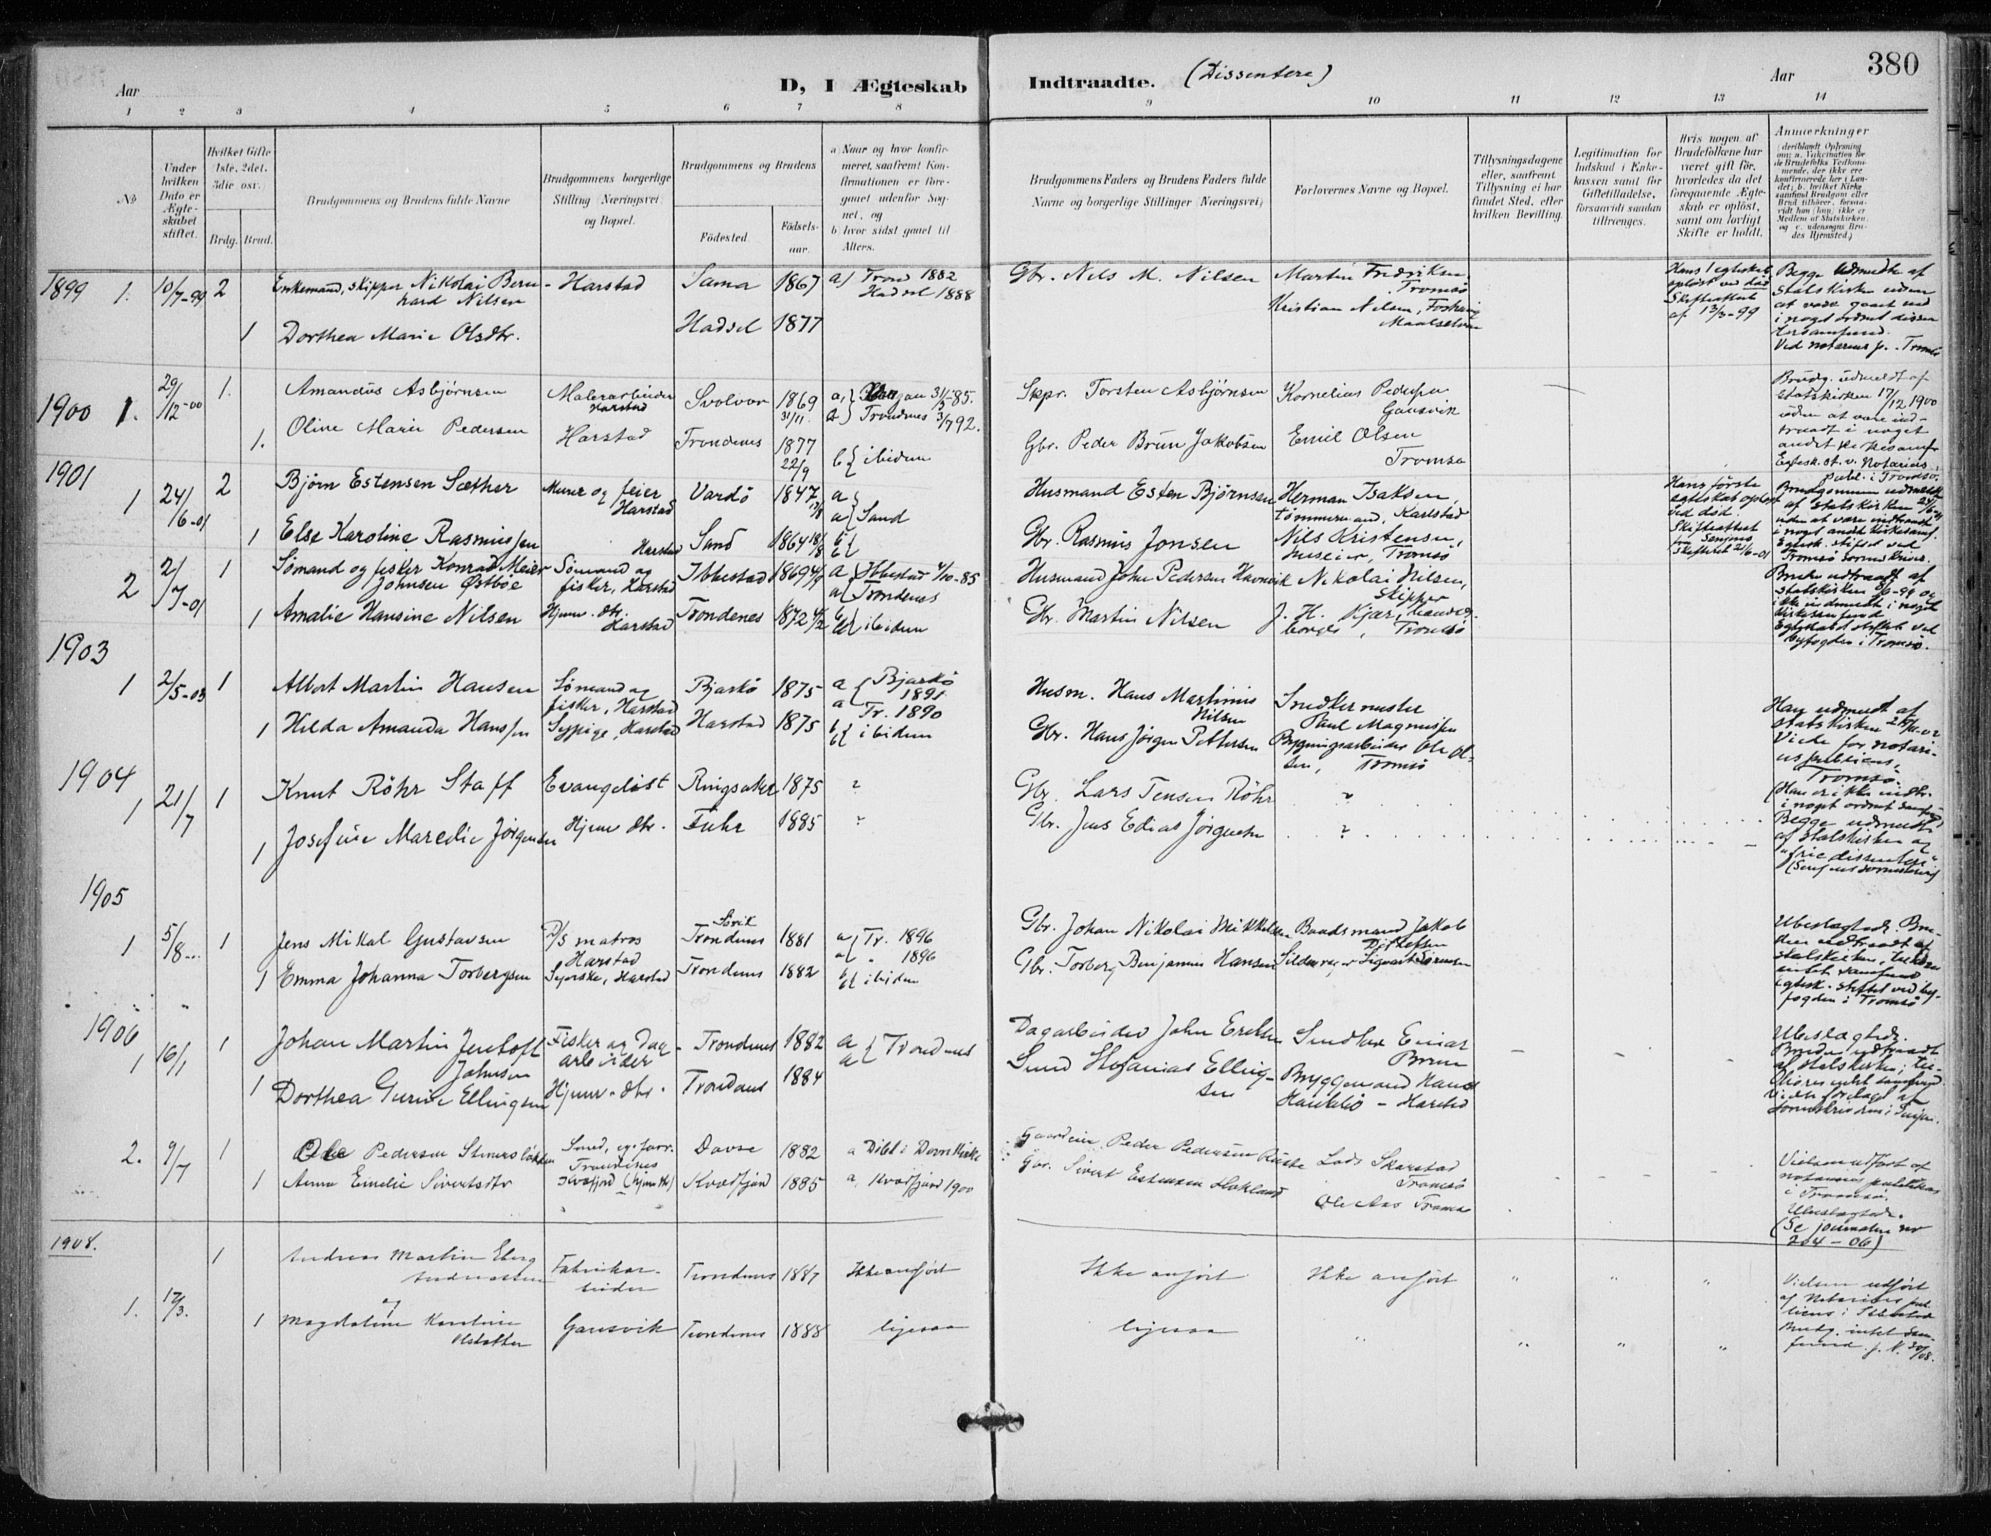 380
Aar
D, I Ægteskab Indtraadte. (Dissentere)
Aar
1 2 3 4 5 6 7 8 9 10 11 12 13 14
No
Under hvilken Dato er Ægteskabet stiftet.
Hvilket Gifte 1ste, 2det, 3die osv.
Brdg. Brud.
Brudgommens og Brudens fulde Navne
Brudgommens borgerlige Stilling (Næringsvei) og Bopæl.
Brudgommens og Brudens
Fødested. Fødselsaar.
a Naar og hvor konfirmeret, saafremt Konfirmationen er foregaaet udenfor Sognet, og
b hvor sidst gaaet til Alters.
Brudgommens Faders og Brudens Faders fulde Navne og borgerlige Stillinger (Næringsvei)
Forlovernes Navne og Bopæl.
Tillysningsdagene eller, saafremt Tillysning ei har fundet Sted, efter hvilken Bevilling.
Legitimation for Indskud i Enkekassen samt for Giftetilladelse, forsaavidt saadan tiltrænges.
Hvis nogen af Brudefolkene har været gift før, hvorledes da det foregaaende Ægteskab er opløst, samt om lovligt Skifte er holdt.
Anmærkninger
1899 1. 10/7-99 2 Enkemand, skipper Nikolai Bernhard Nilsen Harstad Sama 1867 a) Trond 1882
Hadsel 1888
Gbr. Nels M. Nilsen Martin Fredriksen, Tromsø
Kristian Nilsen, Maalselven
Hans 1 egteskab opløst ved død Skifteattest af 13/3-99
Begge udmeldte af Statskirken uden at være gaaet ind i noget ordnet dissentersamfund. Ved notarius p. Tromsø
1 Dorthea Marie Olsdtr. Hadsel 1877
1900 1. 29/12-00 1. Amandus Asbjørnsen Malerarbeider Harstad Svolvær 1869 31/11
a) Trondenes 3/7 92.
Skpr. Torsten Asbjørnsen Kornelius Pedersen Gansvik
Brudg. udmeldt af Statskirken 17/12 1900 uden at være indtraadt i noget andet kirkesamf. Egtesk. st. v. Notarius publ. i Tromsø.
1. Oline Marie Pedersen Harstad Trondenes 1877 22/9 b { ibidem
Gbr. Peder Brun Jakobsen Emil Olsen Tromsø
1901
1 24/6-01 2 Bjørn Estensen Sæther Murer og feier Harstad Vardø 1847 a
a { Sand
Husmand Esten Bjørnsen Herman Isaksen, tømmermand, Karlstad
Hans første egteskab opløst ved død. Skifteattest fra Senjens skifteret 21/6-01
Brudgommen udmeldt af Statskirken 24/6-01 uden at være indtraadt i noget andet kirkesamf. Egtesk. stiftet ved Tromsø sorenskriver.
1 Else Karoline Rasmussen Harstad Sand 1864 18/8 b
Gbr. Rasmus Jonsen Nils Kristensen, Tromsø
2 2/7-01 1 Sømand og fisker Konrad Meier Johnsen Østbøe Sømand og fisker, Harstad Ibbestad 1869 4/9 a { Ibbestad 4/10-85
a { Trondenes
Husmand John Pedersen Havnvik Nikolai Nilsen, Skipper
Brude udtraadt af Statskirken ikke indmeldt i noget kirkesamfund Egteskabet stiftet ved byfogden i Tromsø.
1 Amalie Hansine Nilsen Hjemv. dtr. Harstad Trondenes 1872 4/2 b { ibidem
Gbr. Martin Nilsen J. H. Kjær, Tromsø
1903
1 2/5-03 1 Albert Martin Hansen Sømand og fisker, Harstad Bjarkø 1875 a { Bjarkø 1891
a Tr. 1890
Husm. Hans Martinius Nilsen Snedkermester Paul Magnussen
Han udmeldt af statskirken Viede for notarius publicus, Tromsø.
(Han er ikke indtr. i noget ordnet samfund)
1 Hilda Amanda Hanssen Sypige, Harstad Harstad 1875 b { ibidem
Gbr. Hans Jørgen Pettersen Bygningsarbeider Ole Olsen, Tromsø
1904
1 21/7 1 Knut Röhr Staff Evangelist Ringsaker 1875 ?
Gbr. Lars Jensen Röhr ?
Begge udmeldt af Statskirken og "frie dissentere"
1 Josefine Maredie Jørgensen Hjemv. dtr. Fuhr 1885 ?
Gbr. Jens Edias Jørgensen ?
1905
1 5/8 1 Jens Mikal Gustavsen D/S matros Harstad Sørvik Trondenes 1881 a { Tr. 1896
a { " 1896
Gbr. Johan Nikolai Mikkelsen Baadsmand Jakob Ditlefsen
Ubeslægtede Bruden udtraadt af statskirken, tilhører intet samfund egtesk. stiftet ved byfogden i Tromsø
1 Emma Johanna Torbergsen Syerske, Harstad Trondenes 1882 b { ibidem
Gbr. Torberg Benjamin Hansen Sigvart Sørensen
1906
1 16/1 1 Johan Martin Jentoft Johnsen Fisker og Dagarbeider Trondenes 1882 a
a { Trondenes
Dagarbeider John Eriksen Snedker Einar Breen
Ubeslægtede. Bruden udtraadt af Statskirken; tilhører intet samfund. Viede foretaget af sorenskriveren i Senjen.
1 Dorthea Gurine Ellingsen Hjemv. dtr. Trondenes 1884
Smed Stefanias Ellingsen Bryggemand Hans Haukebø - Harstad
2. 9/7 1 Ole Pedersen Stenersløkken Smed, Trondenes Dovre 1882 a Døbt i Dovre Kirke
Gaardeier Peder Pedersen Ruste Lods Skarstad Tromsø
Vielsen udført af notarius publicus i Tromsø. Ubeslægtede. (Se journalen no 204-06)
1 Anna Emilie Sivertsdtr Kvæfjord (hjemv.) Kvædfjord 1885 a, Kvædfjord 1900
Gbr. Sivert Estensen Hokland Ole Aas Tromsø
1908.
1. 17/3. 1 Andreas Martin Eberg Andreassen Fabrikarbeider Trondenes 1887 Ikke anført
Ikke anført Ikke anført " " "
Vielsen udført af Notarius publicus i Brudg. intet samfund. j. N. 30/08.
og
1 Magdalene Karoline Olsdatter Gansvik Trondenes 1888 ligesaa
ligesaa " " " "